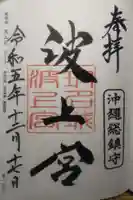 奉拝
沖縄総鎮守
波上宮
令和五年十二月十七日